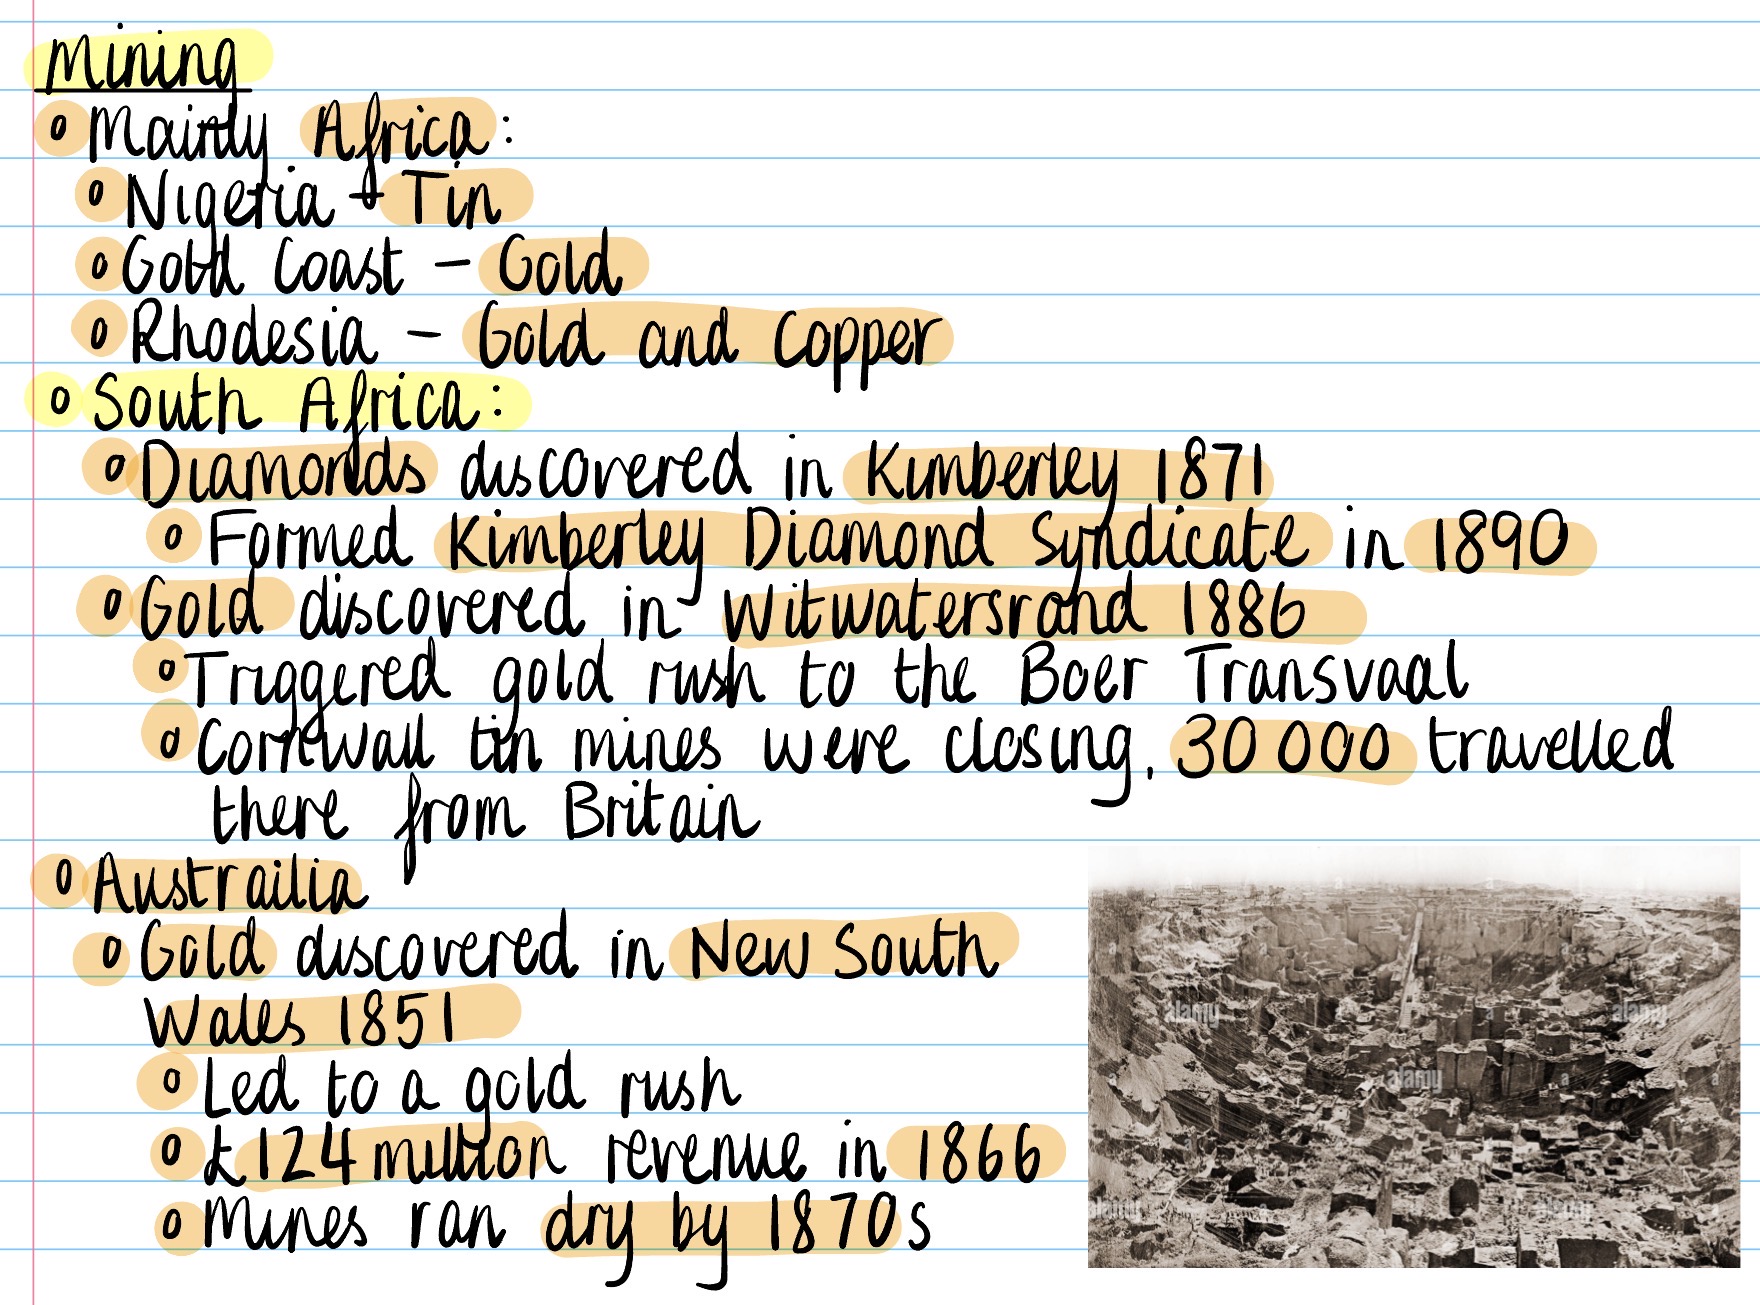 Mining
Mainly Africa:
Nigeria - Tin
Gold Coast - Gold
Rhodesia - Gold and Copper
South Africa:
Diamonds discovered in Kimberley 1871
Formed Kimberley Diamond Syndicate in 1890
Gold discovered in Witwatersrand 1886
Triggered gold rush to the Boer Transvaal
Cornwall tin mines were closing, 30 000 travelled
there from Britain
Austrailia
Gold discovered in New South
Wales 1851
Led to a gold rush
£124 million revenue in 1866
Mines ran dry by 1870s
alamy
alamy
alamy
alamy
alamy